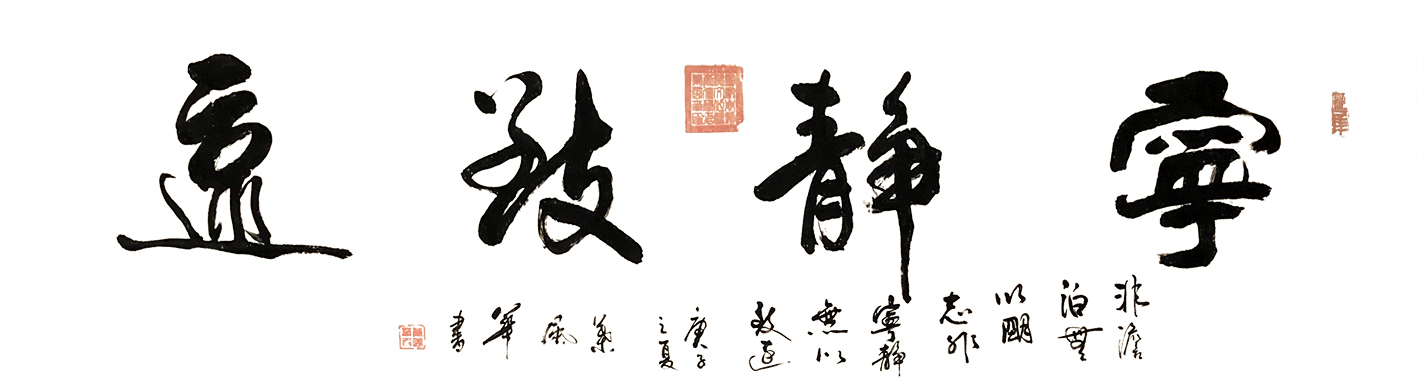 寧靜致遠
非澹
泊無
以明
志非
寧靜
無以
致遠
庚子
之夏
華
書